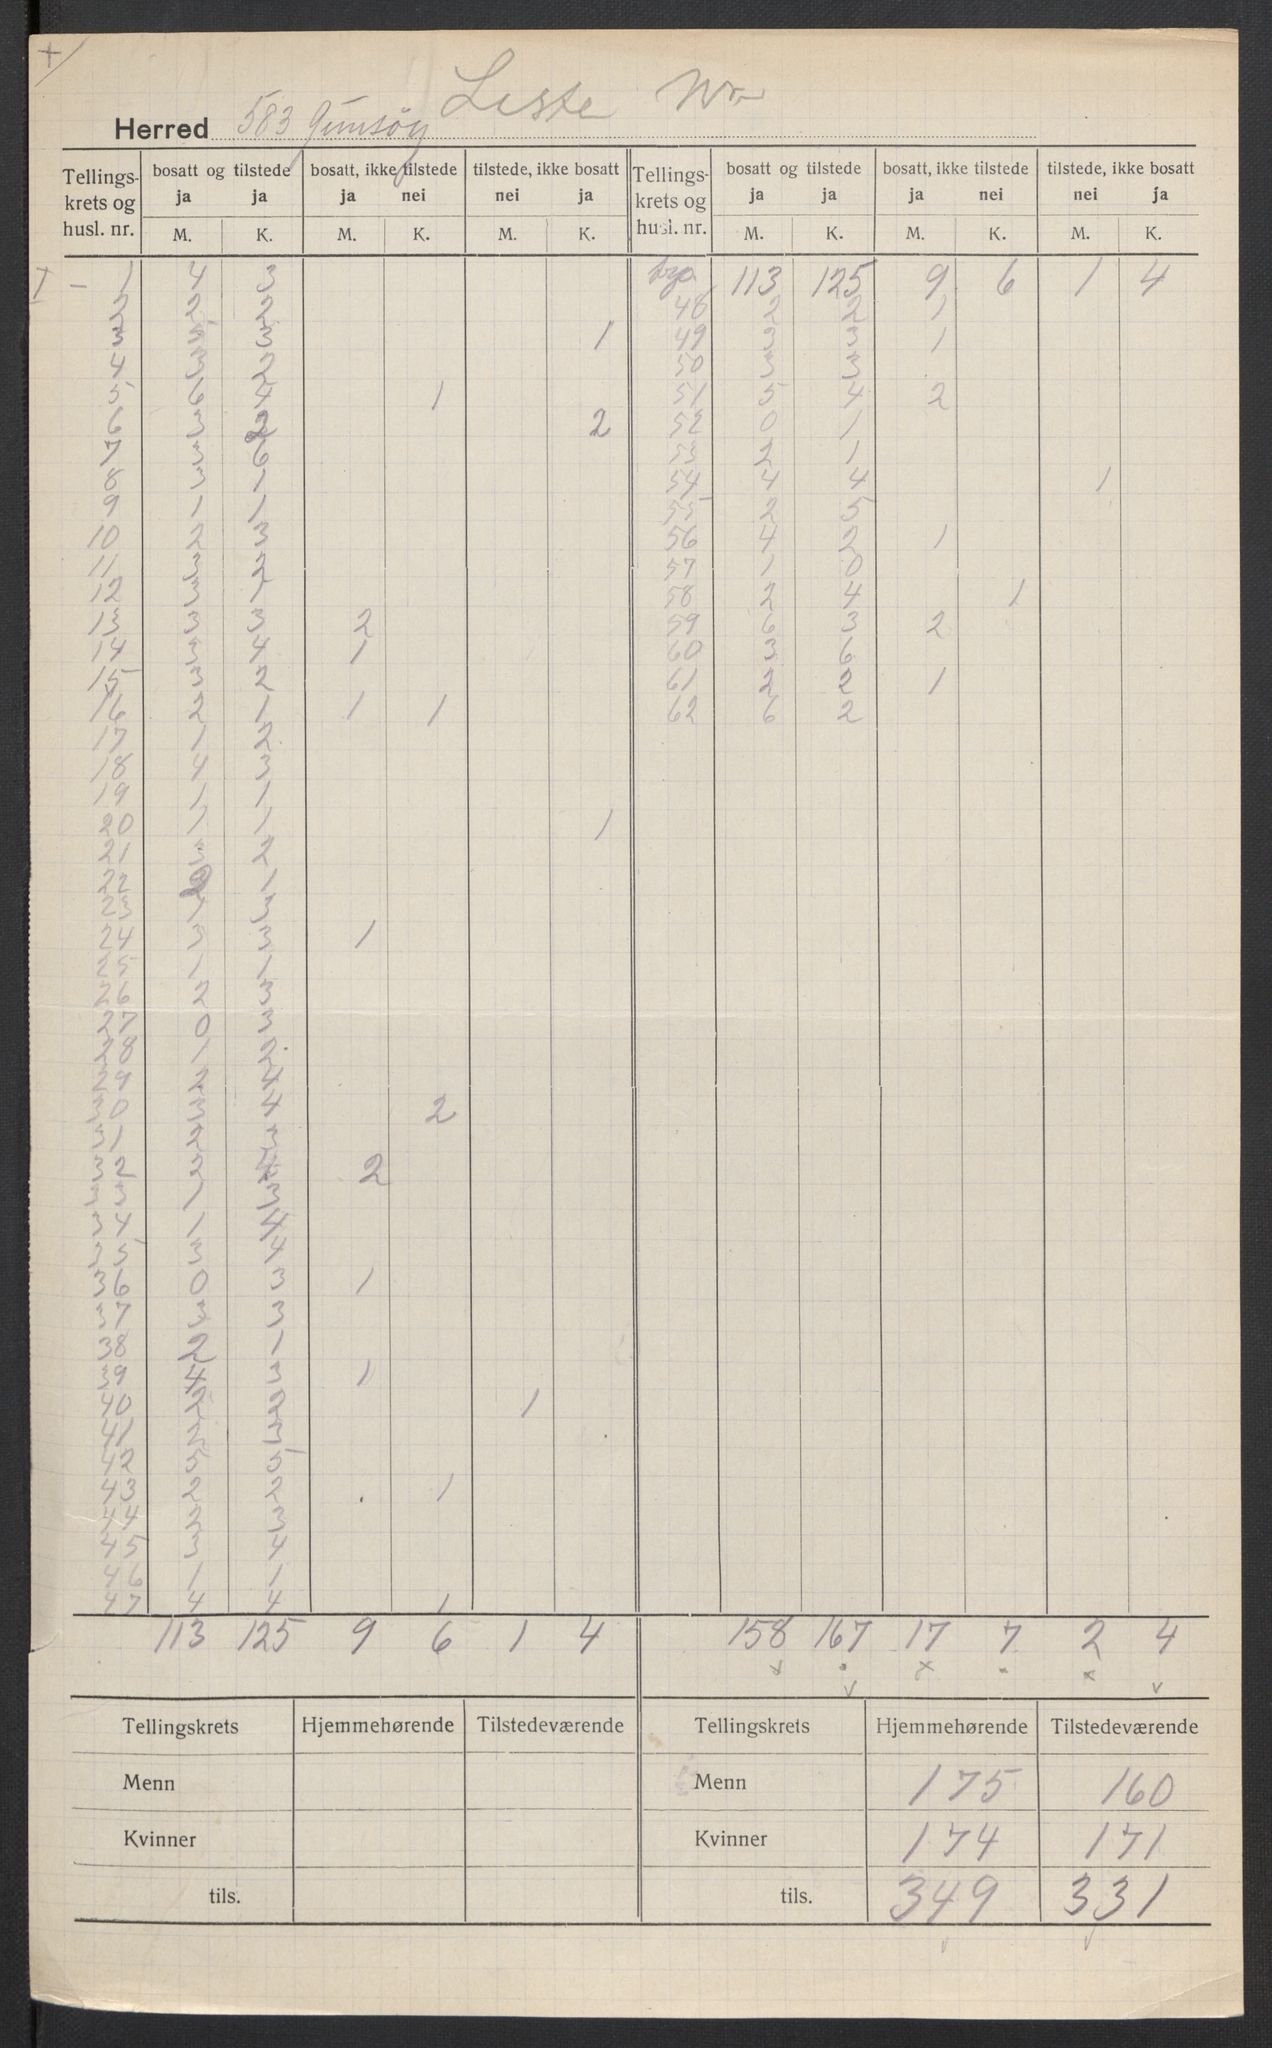 Liste Nr
Herred 583 Gimsøy
Tellings- krets og husl. nr. | bosatt og tilstede ja ja | bosatt, ikke tilstede ja nei | tilstede, ikke bosatt nei ja | Tellings- krets og husl. nr. | bosatt og tilstede ja ja | bosatt, ikke tilstede ja nei | tilstede, ikke bosatt nei ja
M. K. M. K. M. K. M. K. M. K. M. K.
I - 1 4 3 113 125 9 6 1 4
2 2 2 48 2 2 1
3 3 1 49 3 3 1
4 3 2 50 3 3
5 6 4 1 51 5 4 2
6 3 2 2 52 0 1
7 3 6 53 2 1
8 3 1 54 4 4 1
9 1 1 55 2 5
10 2 3 56 4 2 1
11 3 2 57 1 0
12 3 1 58 2 4 1
13 3 3 2 59 6 3 2
14 3 4 1 60 3 6
15 3 2 61 2 2 1
16 2 1 1 1 62 6 2
17 1 2
18 4 3
19 1 1
20 1 1 1
21 2
22 1
23 1 3
24 3 3 1
25 1 1
26 2 3
27 0 3
28 1 2
29 2 4
30 3 4 2
31 2
32 2 2
33 1
34 1 4
35 3 4
36 0 3 1
37 3 3
38 2 1
39 4 3 1
40 2 2 1
41
42 5 5
43 2 2 1
44 3
45 3 4
46 1 1
47 4 4 1
113 125 9 6 1 4 158 167 17 7 2 4
Tellingskrets Hjemmehørende Tilstedeværende Tellingskrets Hjemmehørende Tilstedeværende
Menn Menn 175 160
Kvinner Kvinner 174 171
tils. tils. 349 331